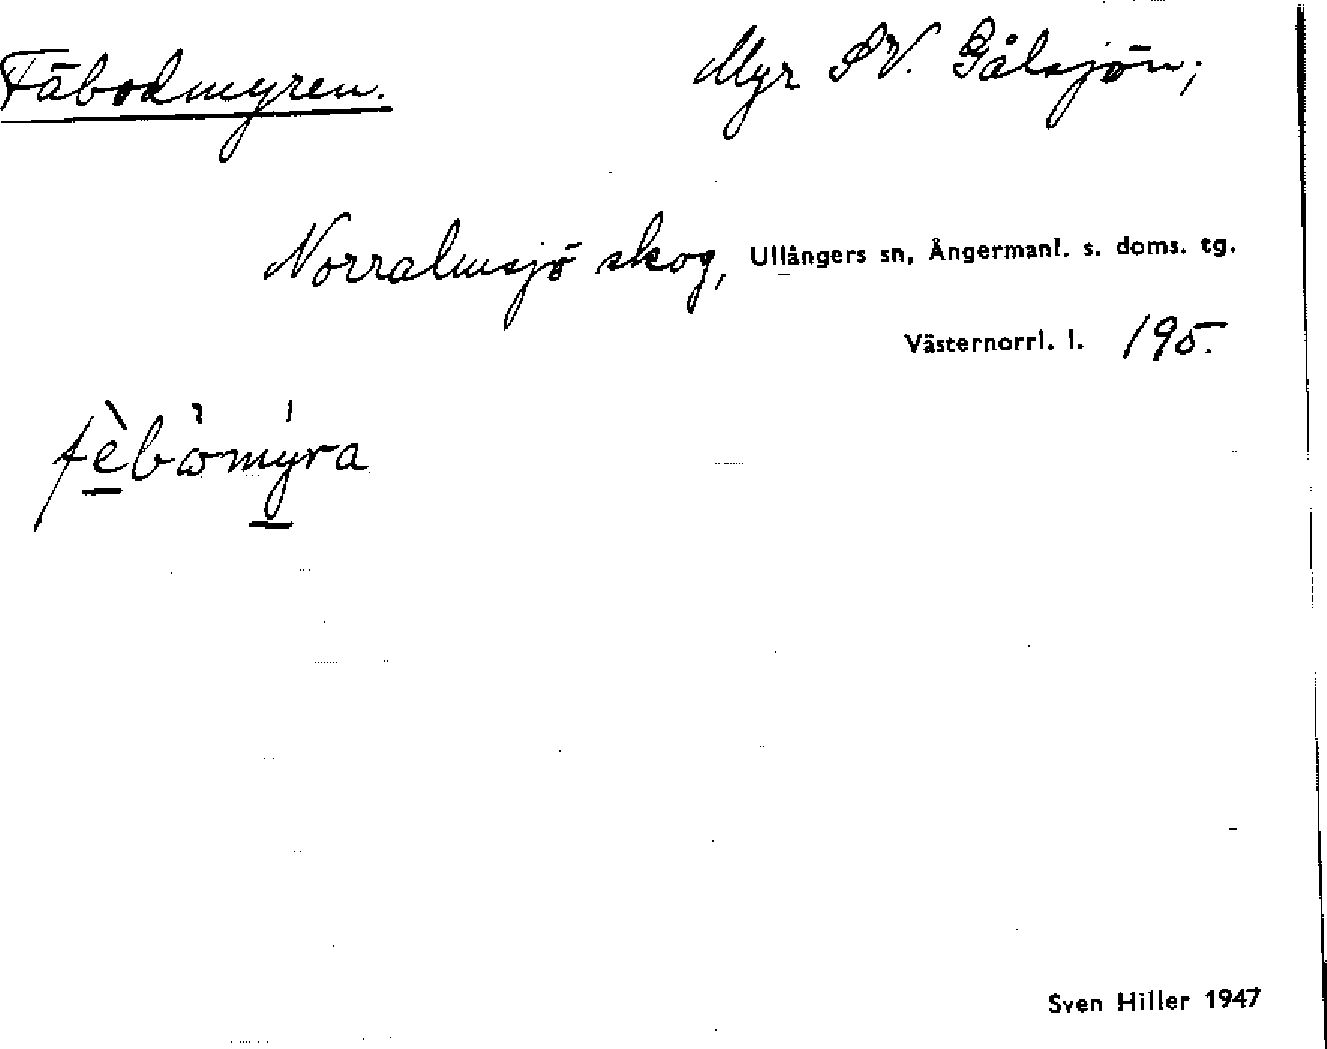 Fäbodmyren. Myr SV. Gålsjön;
Norralmsjö skog, Ullångers sn, Ångermanl. s. doms. tg.
Västernorrl. l. 195.
fèbòmýra
Sven Hiller 1947